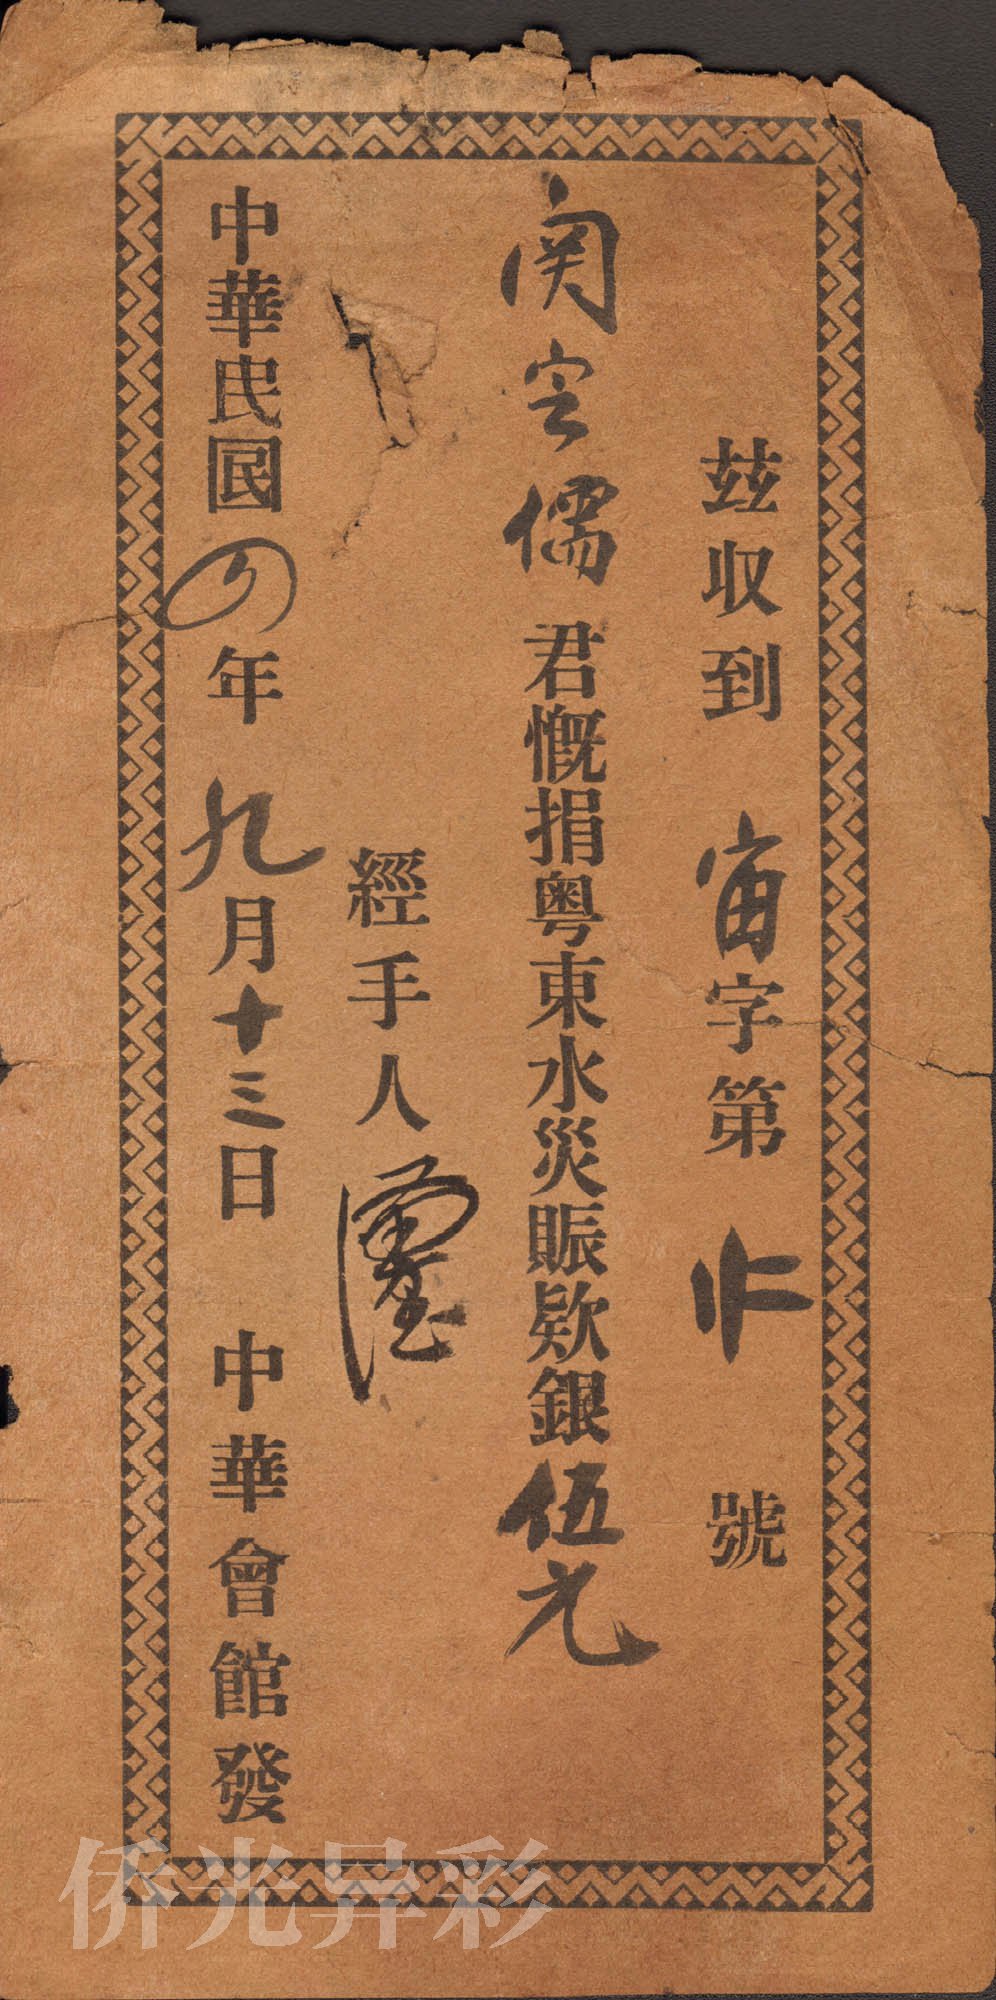 茲收到 宙字第 號
关 儒君慨捐粤東水災賑欵銀伍元
經手人
中華民國四年九月十三日 中華會館發
侨光异彩